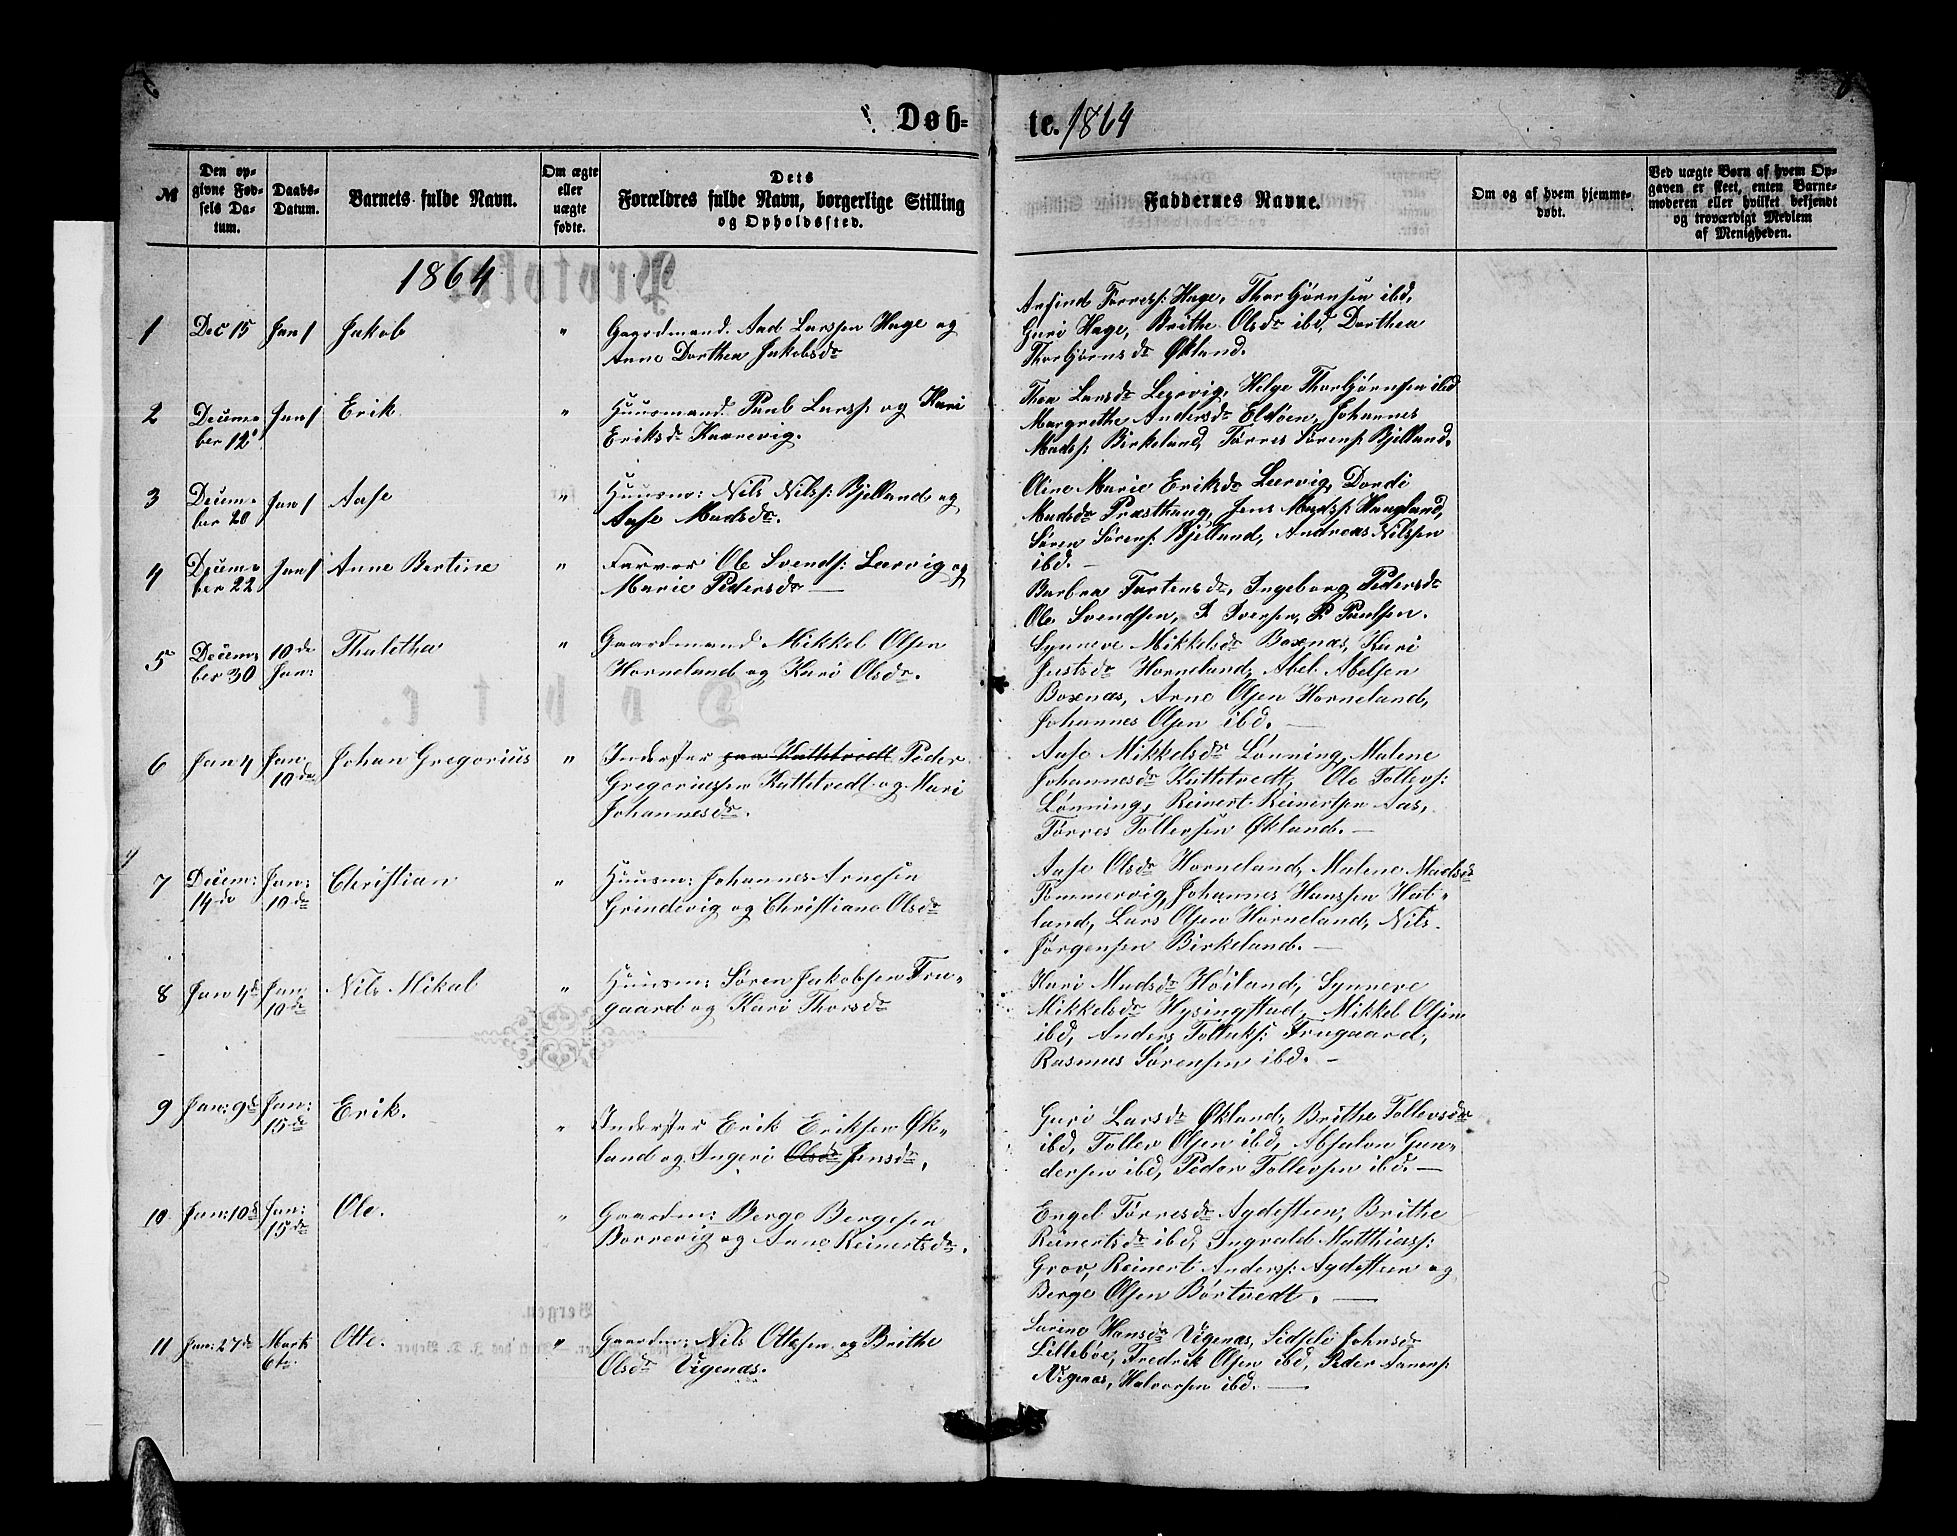 Døb-
te. 1864
№
Den op-
givne Fød-
sels Da-
tum.
Daabs-
Datum.
Barnets fulde Navn.
Om ægte
eller
uægte
fødte.
Dets
Forældres fulde Navn, borgerlige Stilling
og Opholdssted.
Faddernes Navne.
Om og af hvem hjemme-
døbt.
Ved uægte Børn af hvem Op-
gaven er skeet, enten Barne-
moderen eller hvilket bekjendt
og troværdigt Medlem
af Menigheden.
1864
1 Dec 15 Jan 1 Jakob " Gaardmand. Aad Larssen Hage og
Anne Dorthea Jakobsdr
Arfind Torress: Hage, Thorbjørnsen ibd,
Guri Hage, Brithe Olsdr ibd, Dorthea
Thorbjørnsdr Økland.
2 Decem-
ber 12 Jan 1 Erik " Huusmand. Paul Larss: og Kari
Eriksdr Kaarevig.
Thea Larsdr Leirvig, Helge Thorbjørnsen ibd
Margrethe Andersdr Eldøen, Johannes
Madss: Birkeland, Tørres Sørens: Bjelland.
3 Decem-
ber 20 Jan 1 Aase " Huusm: Nils Nilss: Bjelland og
Aase Madsdr.
Oline Marie Eriksdr Lærvig, Dordi
Madsdr Præsthaug, Jens Madss: Haugland,
Søren Sørens: Bjelland, Andreas Nilssen
ibd.
4 Decem-
ber 22 Jan 1 Anne Bertine " Farver Ole Svends: Lærvig og
Marie Pedersdr
Barbra Tortensdr, Ingeborg Pedersdr
Ole Svendsen, I Iversen, P Paulsen.
5 Decem-
ber 30 10de
Jan: Thaletha " Gaardmand Mikkel Olsen
Horneland og Kari Olsdr.
Synneve Mikkelsdr Boxnæs, Kari
Justsdr Horneland, Abel Abelsen
Boxnæs, Arne Olsen Horneland,
Johannes Olsen ibd.
6 Jan 4 Jan
10de Johan Gregorius " Inderster paa Kattetvedt Peder
Gregoriussen Kattetvedt og Mari
Johannesdr.
Aase Mikkelsdr Lønning, Malene
Johannesdr Kattetvedt, Ole Tollevs:
Lønning, Reinert Reinertsen Aas,
Tørres Tollevsen Økland.
7 Decem:
14de Jan:
10de Christian " Huusm: Johannes Arnesen
Grindevig og Christiane Olsdr
Aase Olsdr Horneland, Malene Madsdr
Tommervig, Johannes Hanssen Hat-
land, Lars Olsen Horneland, Nils
Jørgensen Birkeland.
8 Jan 4de Jan
10de Nils Mikal " Huusm: Søren Jakobsen Tru-
gaard og Kari Thorsdr
Kari Madsdr Høiland, Synneve
Mikkelsdr Hysingstad, Mikkel Olsen
ibd, Anders Tollaks: Trugaard,
Rasmus Sørensen ibd.
9 Jan: 9de Jan:
15de Erik. " Inderster Erik Eriksen Øk-
land og Ingeri Olsdr Jensdr.
Guri Larsdr Økland, Brithe Tollevsdr
ibd, Tollev Olsen ibd, Absalon Gun-
dersen ibd, Peder Tollevsen ibd.
10 Jan: 10de Jan:
15de Ole. " Gaardm: Berge Bergesen
Borrevig og Anne Reinertsdr.
Engel Tørresdr Aydesteen, Brithe
Reinertsdr ibd, Ingvald Matthiass:
Grov, Reinert Anders: Aydesteen og
Berge Olsen Børtvedt.
11 Jan: 27de Marts
6te Otte. " Gaardm: Nils Ottesen og Brithe
Olsdr Vigenæs.
Sørine Hansdr Vigenæs, Sidseli Johnsdr
Lillebøe, Fredrik Olsen ibd, Peder
Vigenæs, Halvorsen ibd.